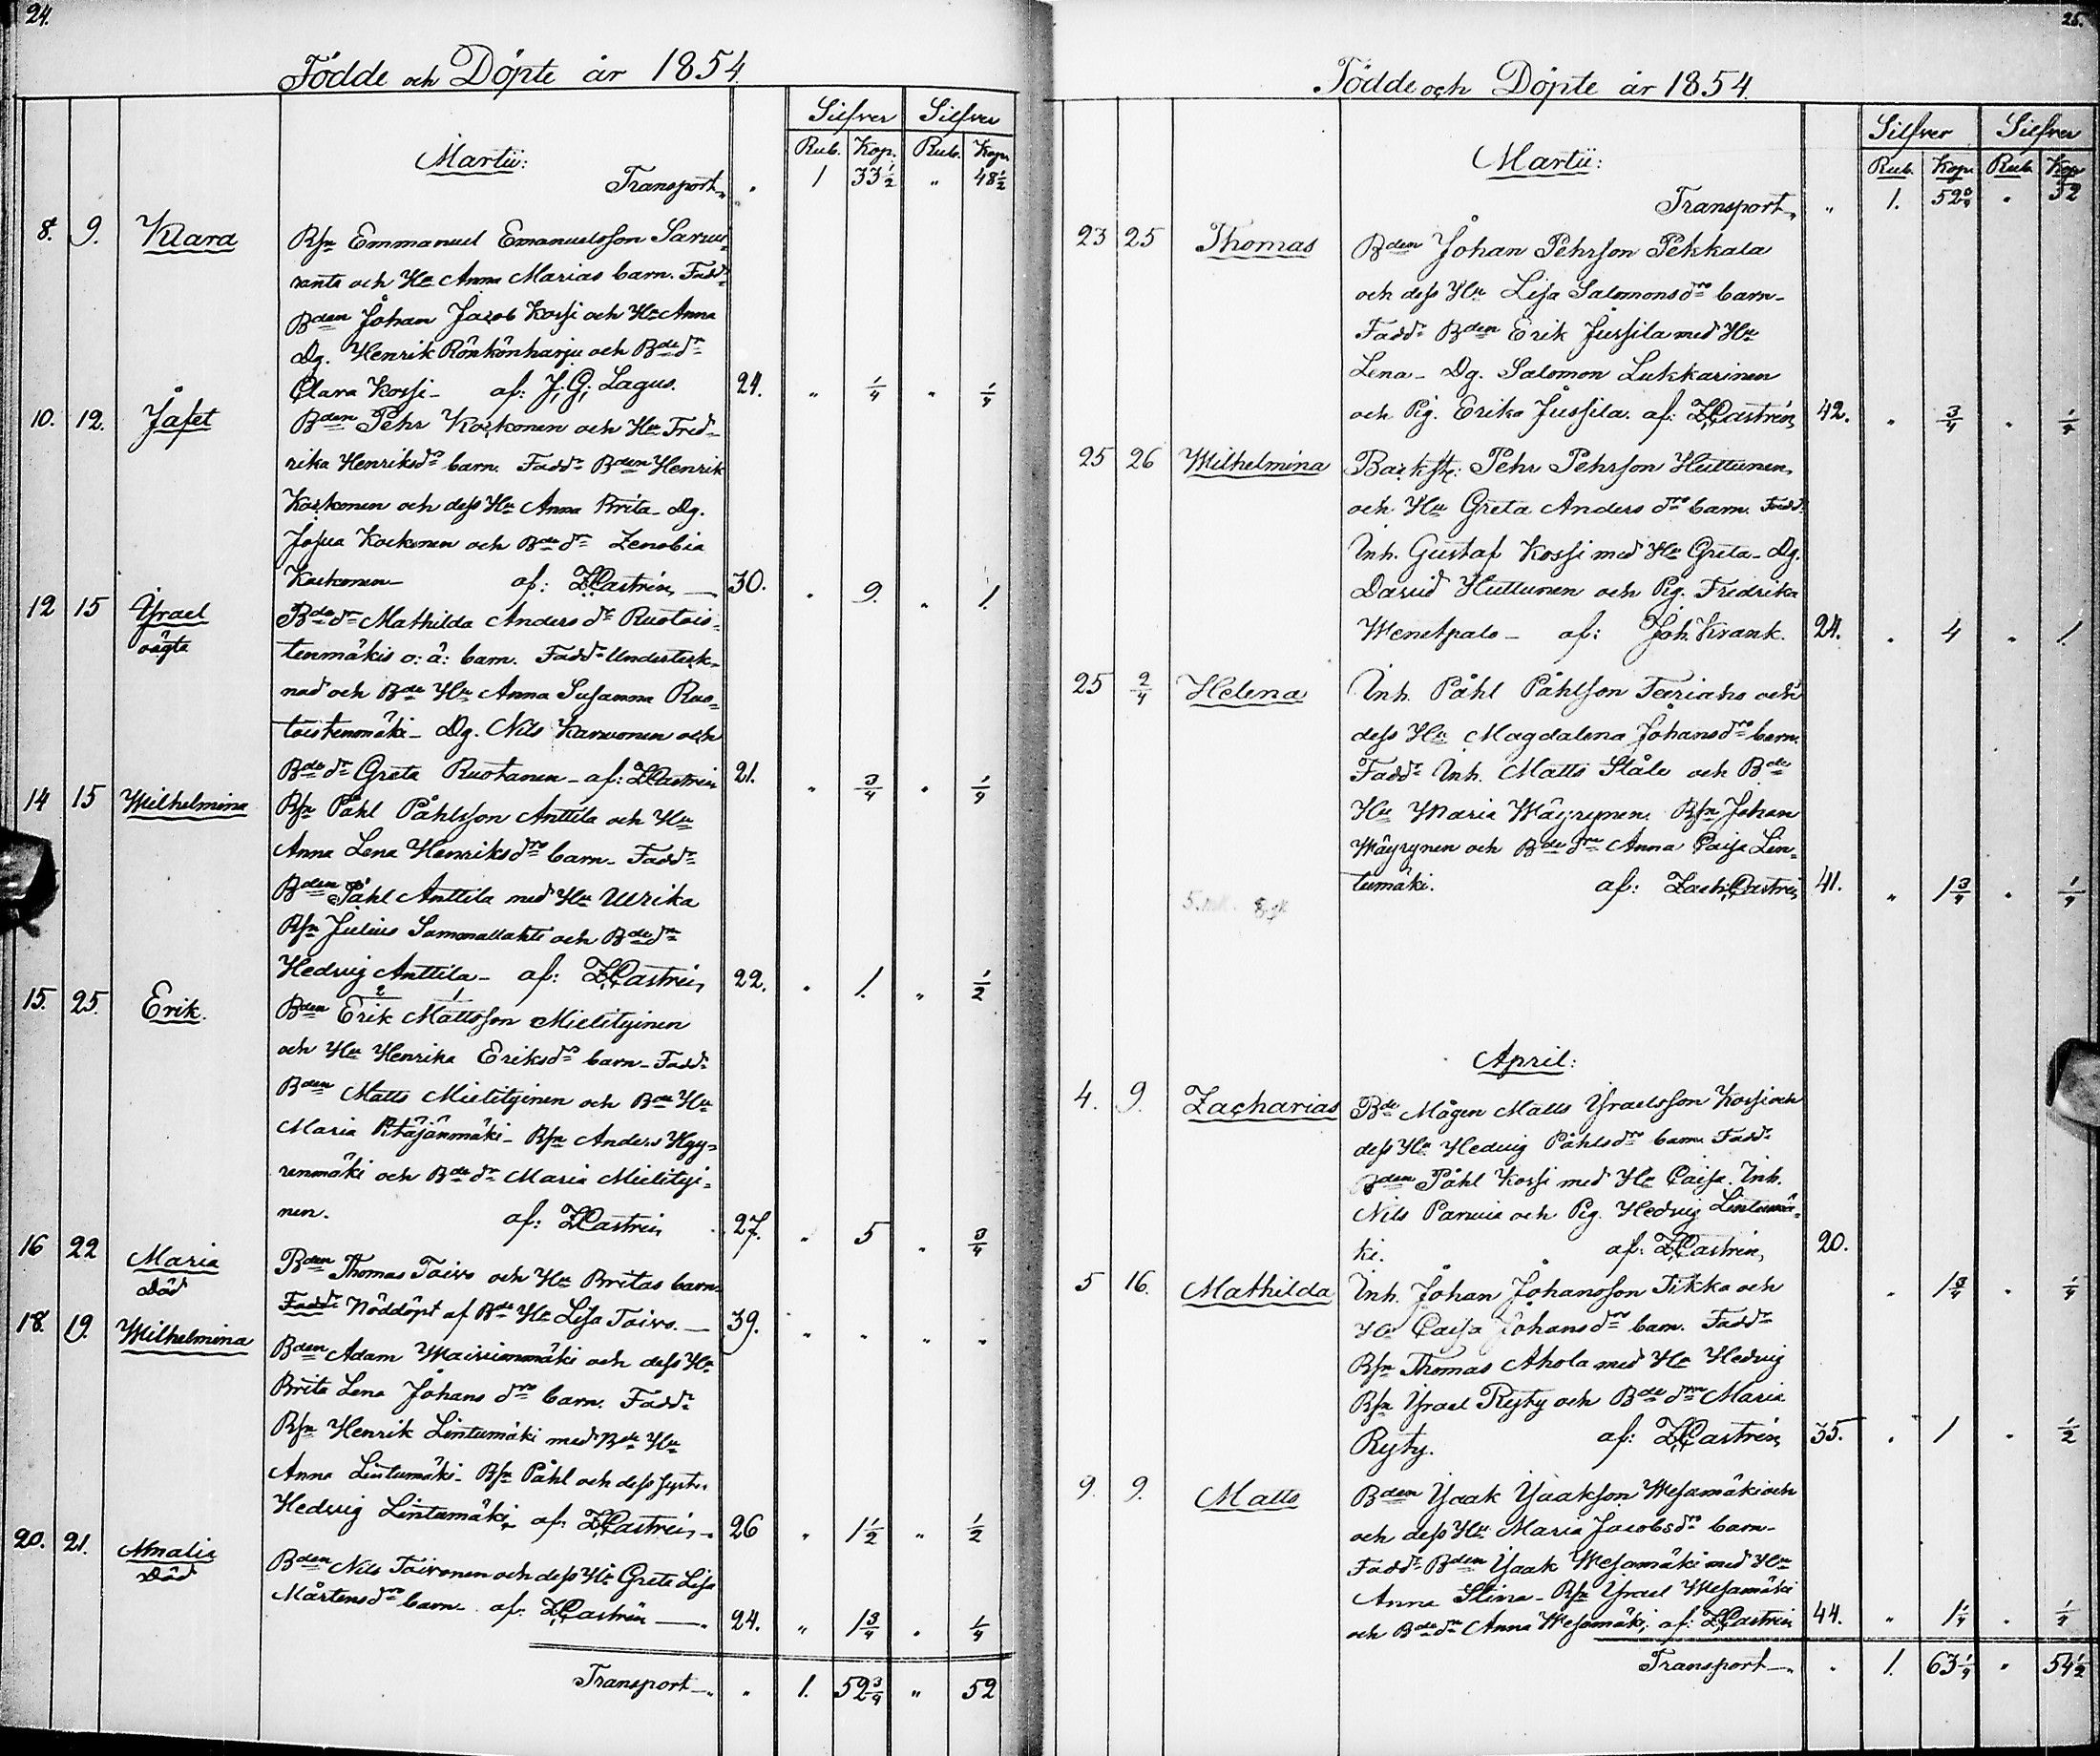 24.
Födde och Döpte år 1854.
Silfver Silfver
Rub. Kop. Rub. Kop.
Martii:
Transport „ „ 1 33 1/2 „ 48 1/2
8. 9. Klara Bfn Emmanuel Emanuelsson
och Hu Anna Marias barn. Fadd:
Bden Johan Jacob Kossi och Hu Anna
Dg. Henrik Rönkönharju och Bde dr
Clara Kossi – af: J. G. Lagus. 24. „ 1/4 „ 1/4
10. 12. Jafet Bden Pehr Koskonen och Hu Fred-
rika Henriksdr barn. Fadd: Bden Henrik
Koskonen och dess Hu Anna Brita – Dg.
Josua Koskonen och Bde dr Zenobia
Koskonen – af: Z. Castrén – 30. „ 9. „ 1.
12 15 Ysrael oägta Bde dr Mathilda Anders dr Ruotois-
tenmäkis o: ä: barn. Fadd: Underteck-
nad och Bde Hu Anna Susanna Ruo-
toistenmäki – Dg. Nils Karvonen och
Bde dr Greta Ruotanen – af: Z. Castrén 21. „ 3/4 „ 1/4
14 15 Wilhelmina Bfn Påhl Påhlsson Anttila och Hu
Anna Lena Henriksdr barn – Fadd:
Bden Påhl Anttila med Hu Ulrika
Bfn Julius och Bde dr
Hedvig Anttila – af: Z. Castrén, 22. „ 1. „ 1/2
15. 25. Erik. Bden Erik 2 Mattsson 1 Mielityinen
och Hu Henrika Eriksdr barn – Fadd:
Bden Matts Mielityinen och Bde Hu
Maria Pitäjänmäki – Bfn Anders Hyy-
renmäki och Bde dr Maria Mielityi-
nen. af: Z. Castrén 27. „ 5 „ 3/4
16 22 Maria Död Bden Thomas Toivo och Hu Britas barn.
Fadd: Nöddöpt af Bde Hu Lisa Toivo. – 39. „ „ „ „
18. 19. Wilhelmina Bden Adam och dess Hu
Brita Lena Johans dr barn. Fadd:
Bfn Henrik Lintumäki med Bde Hu
Anna Lintumäki – Bfn Påhl och dess syster
Hedvig Lintumäki, af: Z. Castrén, – 26 „ 1 1/2 „ 1/2
20. 21. Amalia Död Bden Nils Toivonen och dess Hu Greta Lisa
Mårtensdr barn – af: Z. Castrén –. 24. „ 1 3/4 „ 1/4
Transport –. „ 1. 52 3/4 „ 52
25.
Födde och Döpte år 1854.
Silfver Silfver
Rub. Kop. Rub. Kop
Martii:
Transport „ „ 1. 52 3/4 „ 52
23 25 Thomas Bden Johan Pehrson Pekkala
och dess Hu Lisa Salomonsdr barn –
Fadd: Bden Erik Jussila med Hu
Lena – Dg. Salomon Lukkarinen
och Pig. Erika Jussila. af: Z. Castrén, 42. „ 3/4 „ 1/4
25 26 Wilhelmina Pehr Pehrson Huttunen,
och Hu Greta Anders dr barn. Fadd:
Inh. Gustaf Kossi med Hu Greta – Dg.
David Huttunen och Pig. Fredrika
Wenetpalo – af: Joh. Krank. 24. „ 4 „ 1.
25 2/4 Helena Inh. Påhl Påhlson Teeriaho och
dess Hu Magdalena Johansdr barn.
Fadd: Inh. Matts Ståle och Bde
Hu Maria Wäyrynen. Bfn Johan
Wäyrynen och Bde dr Anna Caisa Lin-
tumäki. af: Zach. Castrén 41. „ 1 3/4 „ 1/4
April:
4. 9. Zacharias Bde Mågen Matts Ysraelsson Kossi och
dess Hu Hedvig Påhlsdr barn. Fadd:
Bden Påhl Kossi med Hu Caisa. Inh.
Nils Parvia och Pig. Hedvig Lintumä-
ki. af: Z. Castrén, 20. „ 1 3/4 „ 1/4
5 16. Mathilda Inh. Johan Johansson Tikka och
Hu Caisa Johansdr barn. Fadd:
Bfn Thomas Ahola med Hu Hedvig
Bfn Ysrael Ryty och Bde dr Maria
Ryty. af: Z. Castrén 35. „ 1 „ 1/2
9. 9. Matts Bden Ysaak Ysaakson Wesamäki och
och dess Hu Maria Jacobsdr barn –
Fadd: Bden Ysaak Wesamäki med Hu
Anna Stina – Bfn Ysrael Wesamäki
och Bde dr Anna Wesamäki, af: Z. Castrén 44. „ 1 1/4 „ 1/4
Transport –. „ 1. 63 1/4 „ 54 1/2